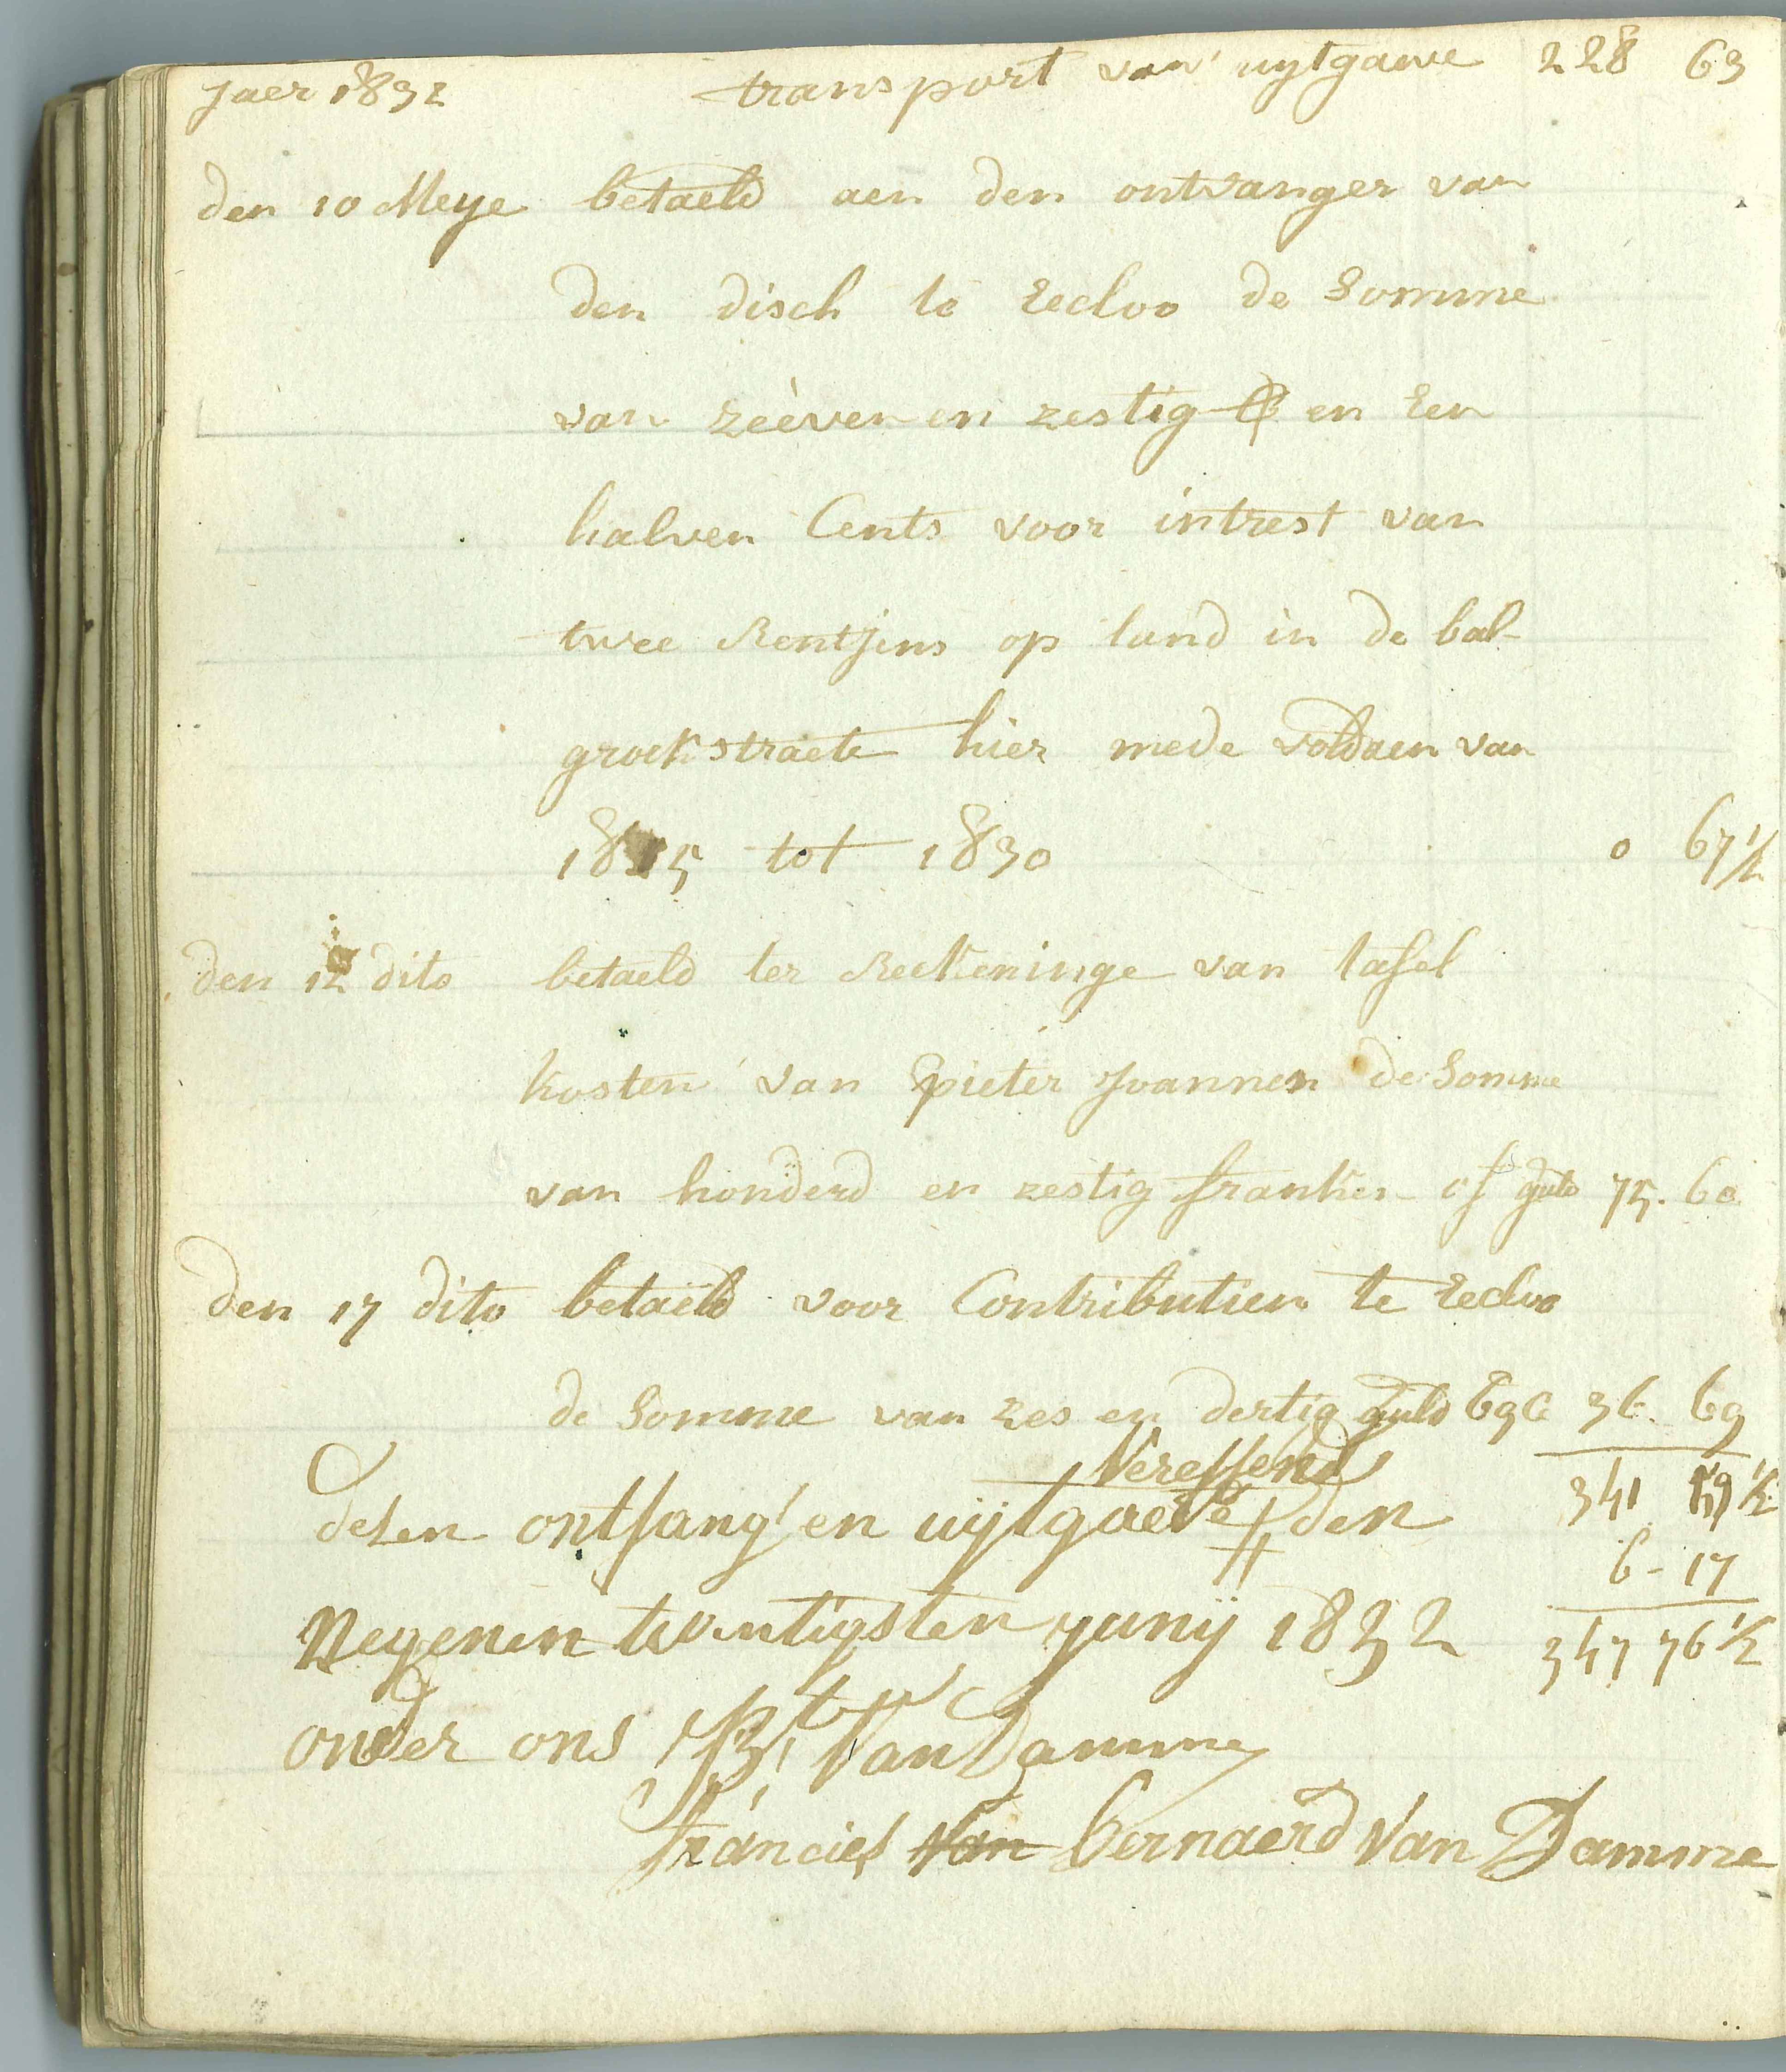 Jaer 1832 transport van uytgaeve 228 63
den 10 Meye betaeld aen den ontvanger van
den disch te Eecloo de Somme
van zeèven en zestig en Een
halven Cents voor intrest van
twee Rentjens op land in de bal-
groekstraete hier mede voldaen van
1815 tot 1830 0 67 1/2
den 12 dito betaeld ter Reekeninge van tafel
kosten van pieter Joannes de Somme
van honderd en zestig franken of guld 75. 60
den 17 dito betaeld voor Contributien te Eecloo
de Somme van zes en dertig guld 69 C 36. 69
Vereffend 341 59 1/2
desen ontfang en uijtgaeve # den
6 - 17
Negenen twintigsten junij 1832 347 76 1/2
onder ons Van Damme
francies Van bernaerd Van Damme